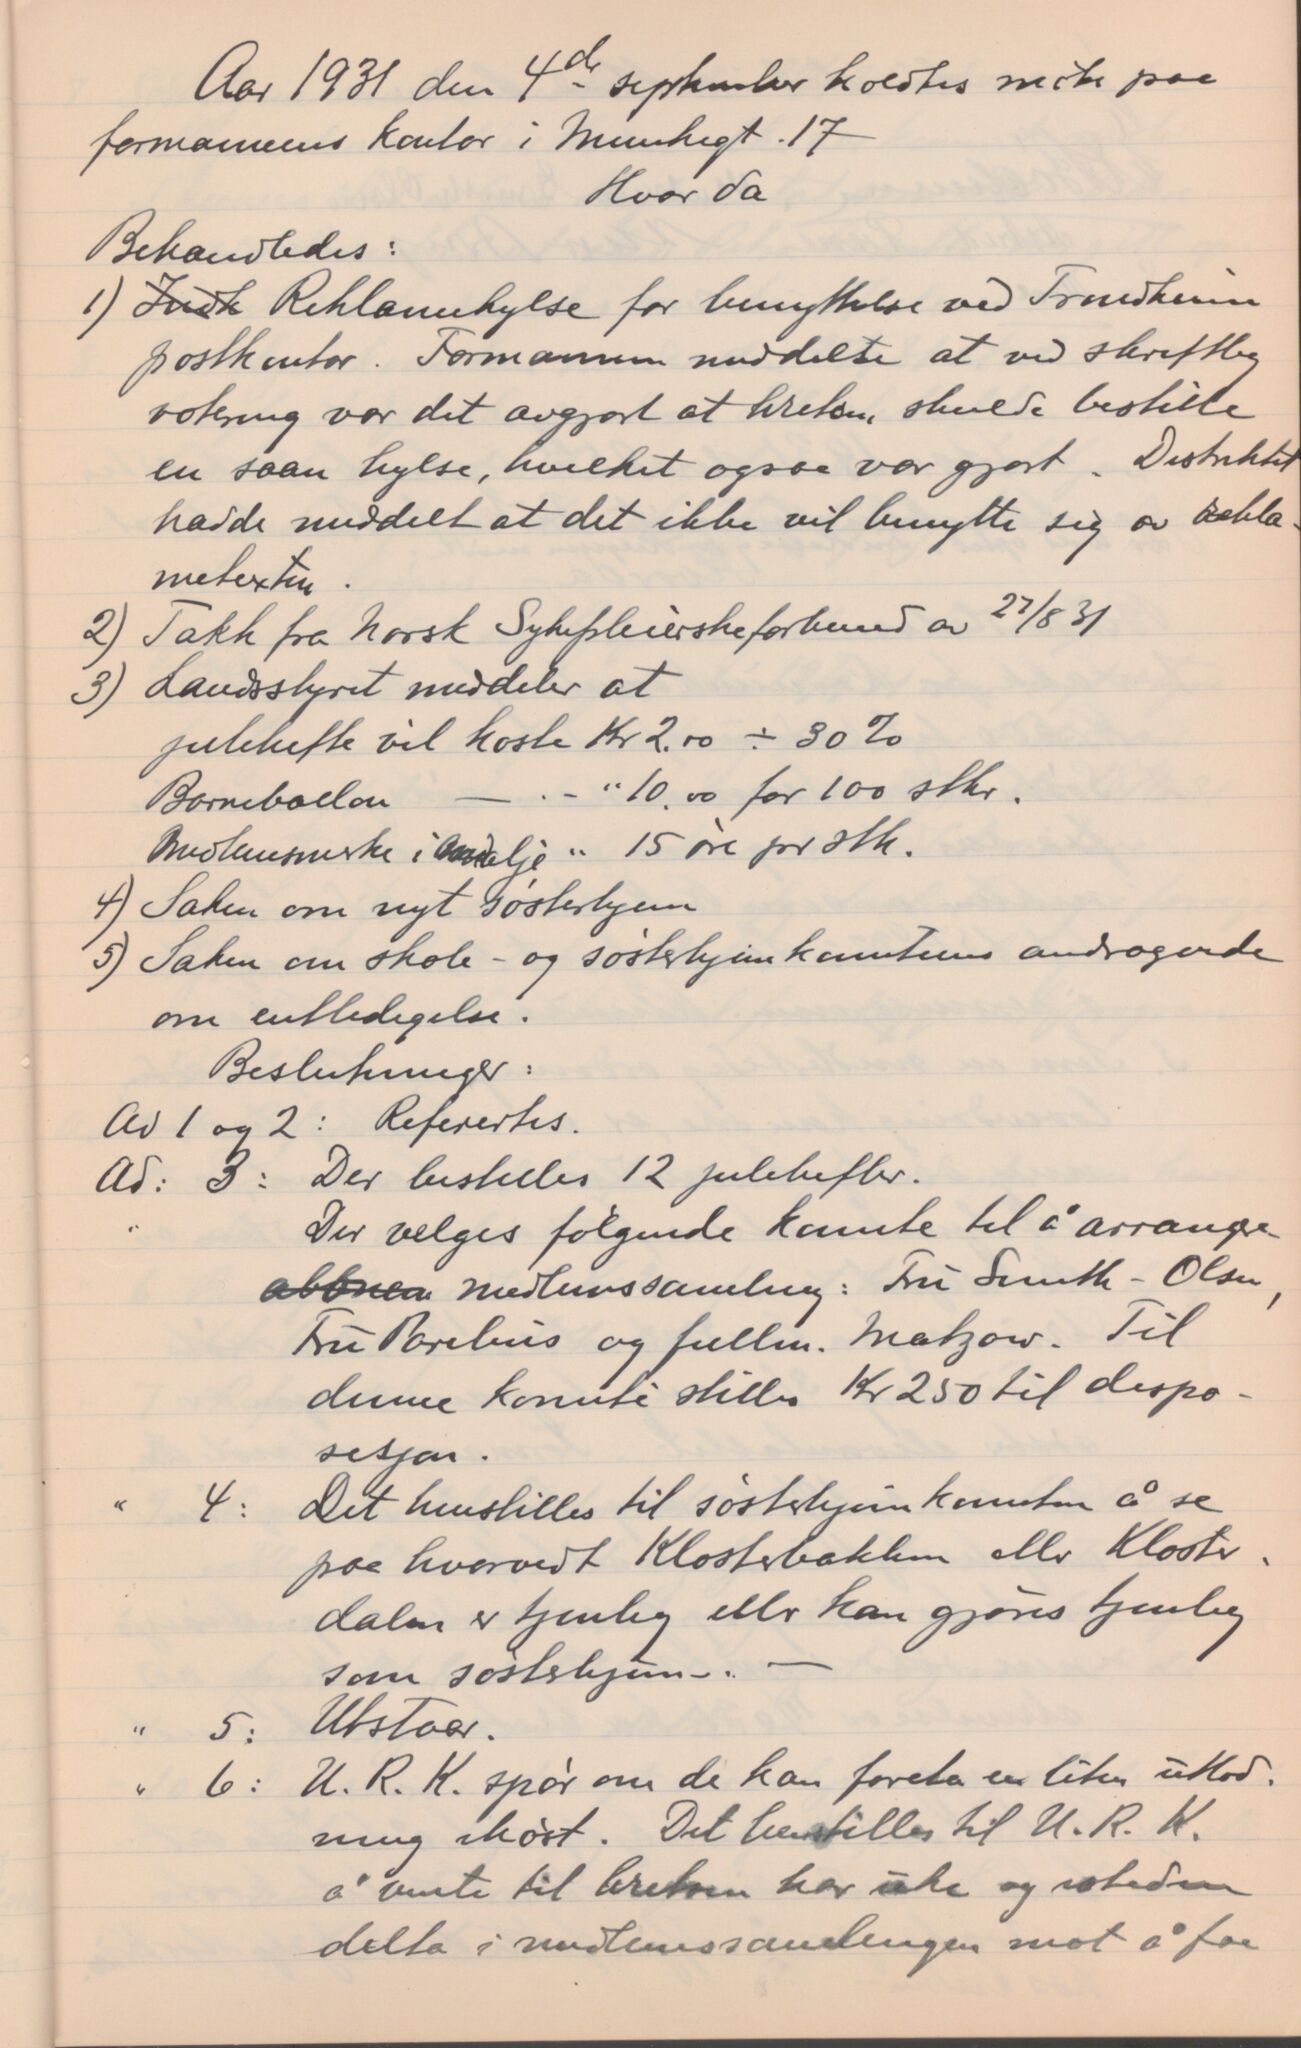 Aar 1931 den 4de september holdtes møte paa
formannens kontor i Munkegt. 17
Hvor da
Behandledes:
1) Reklamehylse for benyttelse ved Trondheim
postkontor. Formannen meddelte at ved skriftlig
votering var det avgjort at kretsen skulde bestille
en saan hylse, hvilket ogsaa var gjort. Distriktet
hadde meddelt at det ikke vil benytte sig av rekla-
metexten.
2) Takk fra Norsk Sykepleierskeforbund av 27/8 31
3) Landsstyret meddeler at
julehefte vil koste Kr 2.00 ÷ 30 %
Barneballon — . - " 10.00 for 100 stkr.
Medlemsmerke i emalje " 15 øre pr stk.
4) Saken om nyt søsterhjem
5) Saken om skole- og søsterhjemkomiteens andragende
om entledigelse.
Beslutninger:
Ad 1 og 2: Referertes.
Ad: 3: Der bestilles 12 julehefter.
" Der velges følgende komite til å arrangere
medlemssamling: Fru Smith-Olsen,
Fru Parelius og fullm. Matzow. Til
denne komité stilles Kr 250 til dispo-
sisjon.
" 4: Det henstilles til søsterhjemkomiteen å se
paa hvorvidt Klosterbakken eller Kloster-
dalen er tjenlig eller kan gjøres tjenlig
som søsterhjem. —
" 5: Utstaar.
" 6: U. R. K. spør om de kan foreta en liten utlod-
ning i høst. Det henstilles til U. R. K.
å vente til kretsen har uke og isteden
delta i medlemssamlingen mot å faa